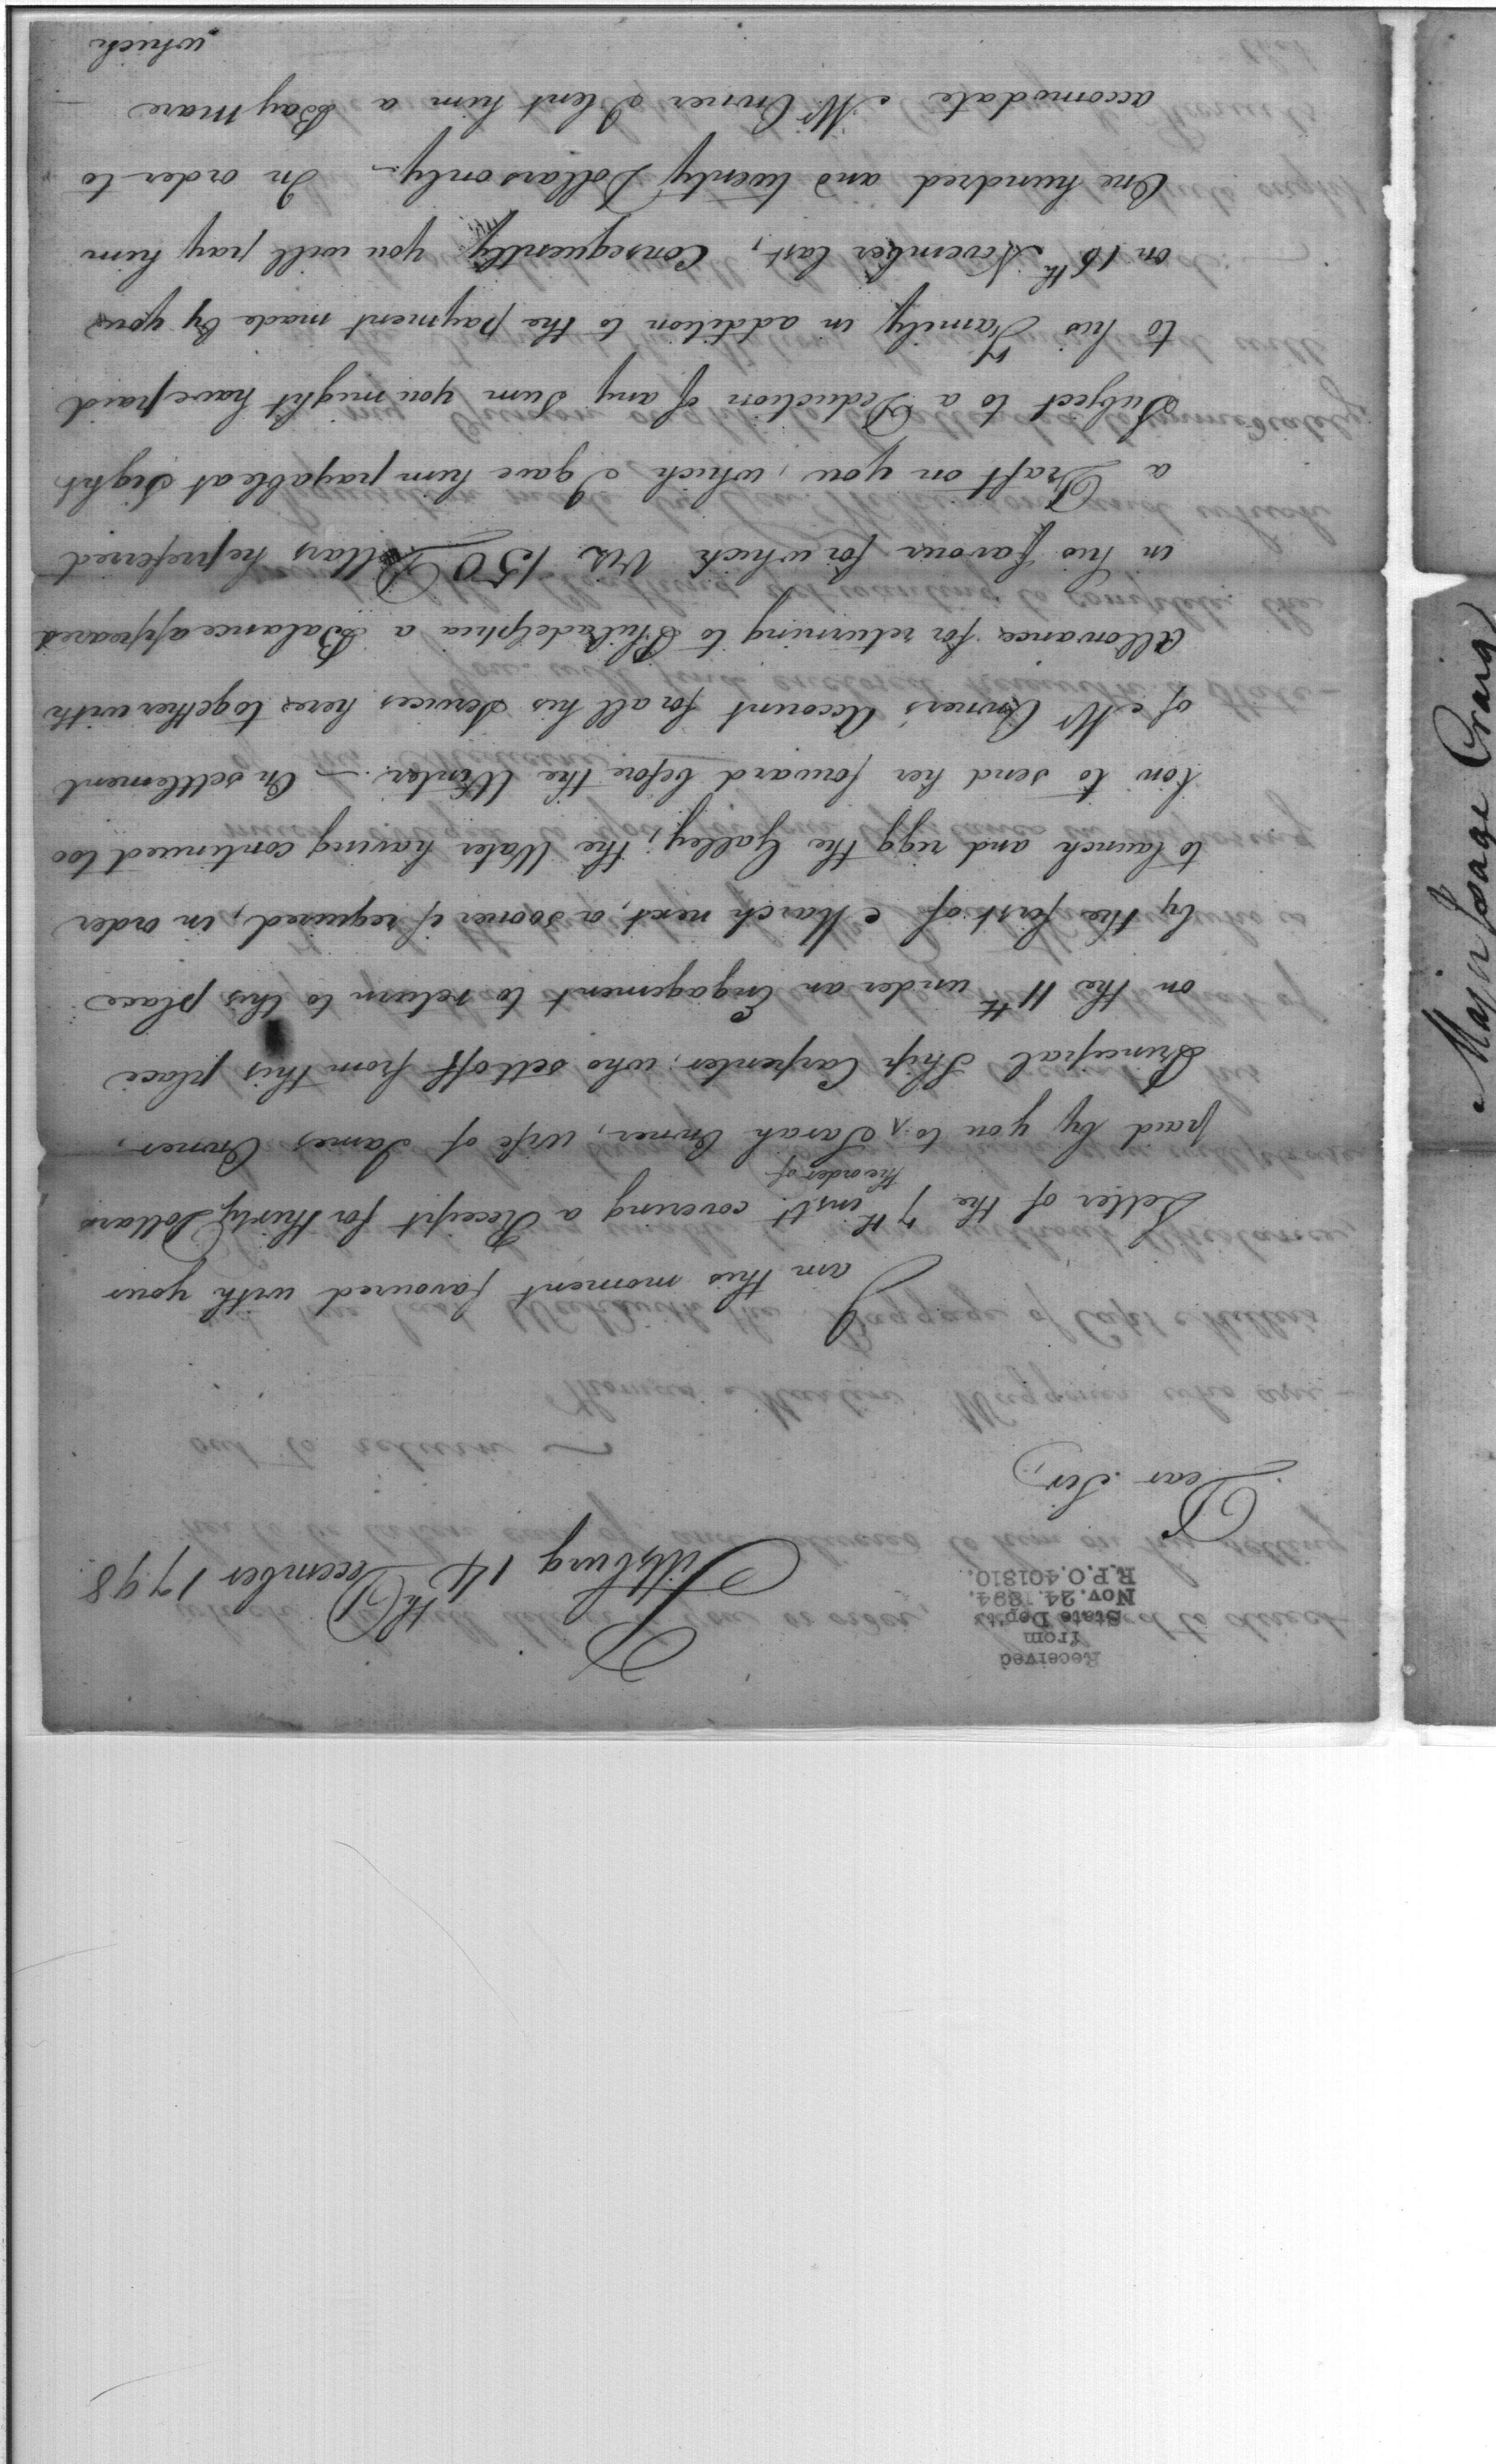 Received
from
State Dep't.
Nov. 24. 1894.
R.P.O. 401810.
Pittsburg 14th December 1798
Dear Sir,
I am this moment favoured with your
Letter of the 7th inst. covering a Receipt for thirty Dollars
the order of
paid by you to ^ Sarah Conner, wife of James Conner,
Principal Ship Carpenter; who sett off from this place
on the 11th under an Engagement to return to this place
by the first of March next, or sooner if required, in order
to launch and rigg the Galley; the Water having continued too
low to send her forward before the Winter. — On settlement
of Mr Conner's Account for all his Services here together with
Allowance for returning to Philadelphia a Balance appeared
in his favour for which Viz 150 Dollars he preferred
a Draft on you, which I gave him payable at Sight
Subject to a Deduction of any Sum you might have paid
to his Family in addition to the payment made by you
on 16th November last, Consequently you will pay him
One hundred and twenty Dollars only — In order to
accomodate Mr Conner I lent him a Bay Mare
which
Major Isaac Craig